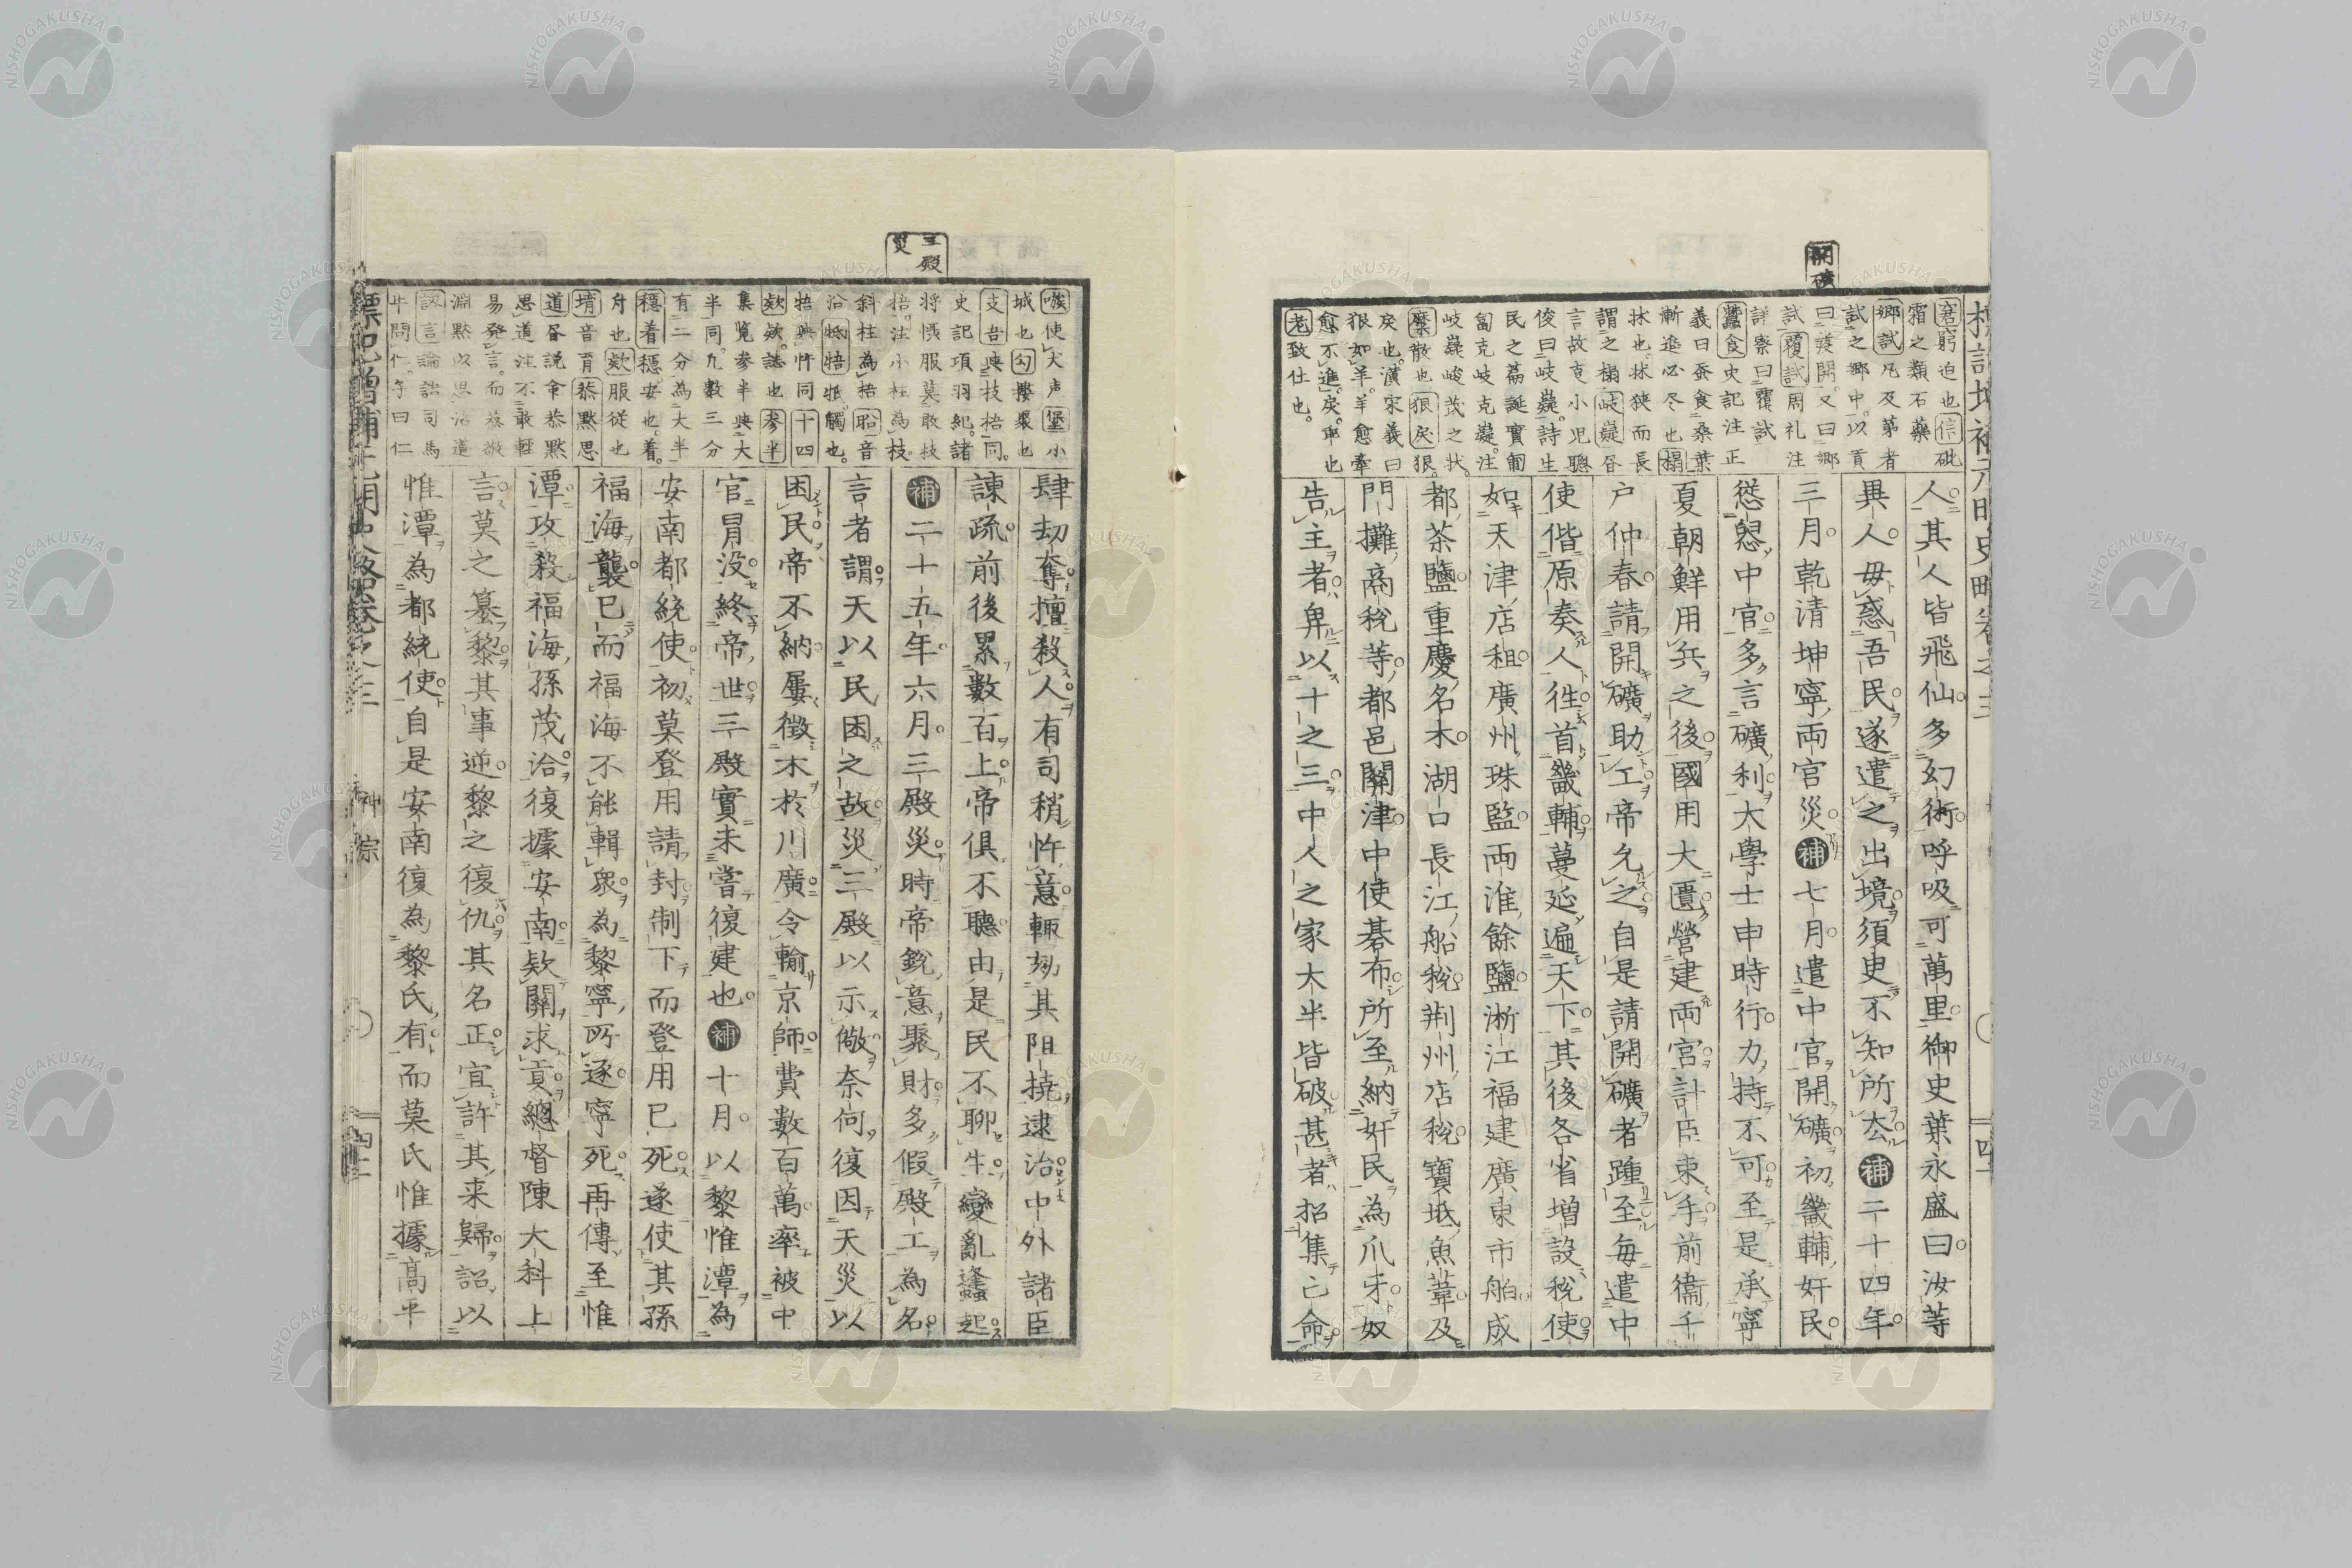 開礦
窘窮迫也信砒
霜之類石藥
鄉試凡及第者
試之鄉中以貢
試覆試周礼注
詳察曰覆試
蠶食史記注正
義曰蚕食桑葉
漸進必尽也榻
牀也牀狹而長
謂之榻岐嶷
言故克小児聰
俊曰岐嶷詩生
民之篇誕實匍
匐克岐克嶷注
岐嶷峻茂之狀
糜散也狠戾狠
戾也漢宋義曰
狠如羊羊愈牽
愈不進戾乖也
老致仕也
人其人皆飛仙多幻術呼吸可萬里御史葉永盛曰汝等
異人毋惑吾民遂遣之出境須臾不知所厺補二十四年
三月乾清坤寧両宮災補七月遣中官開礦初畿輔奸民
慫慂中官多言礦利大學士申時行力持不可至是承寧
夏朝鮮用兵之後國用大匱營建両宮計臣束手前衞千
户仲春請開礦助工帝允之自是請開礦者踵至毎遣中
使偕原奏人徃首畿輔蔓延遍天下其後各省増設税使
如天津店租廣州珠監両淮餘鹽淅江福建廣東市舶成
都茶鹽重慶名木湖口長江船税荆州店税寶坻魚葦及
門攤商税等都邑關津中使碁布所至納奸民為爪牙奴
告主者畀以十之三中人之家大半皆破甚者招集亡命
三殿災
嗾使犬声堡小
城也勾摟聚也
支吾與枝梧同
史記項羽紀諸
將慴服莫敢枝
梧注小柱為枝
斜柱為梧耠音
洽牴牾牴觸也
牾與忤同十四
欬欬誌也參半
集覧参半與大
半同九數三分
有二分為大半
穩着穩安也着
舟也欸服從也
堉音育恭黙思
道書説命恭黙
思道注不敢輕
易發言而恭敬
淵黙以思治道
訒言論語司馬
牛問仁子曰仁
肆刧奪擅殺人有司稍忤意輙劾其阻撓逮治中外諸臣
諫疏前後累數百上帝俱不聽由是民不聊生變亂蠭起
補二十五年六月三殿災時帝鋭意聚財多假殿工為名
言者謂天以民困之故災三殿以示儆奈何復因天災以
困民帝不納屡徴木於川廣令輸京師費數百萬率被中
官冒没終帝世三殿實未嘗復建也補十月以黎惟潭為
安南都統使初莫登用請封制下而登用已死遂使其孫
福海襲已而福海不能輯衆為黎寧所逐寧死再傳至惟
潭攻殺福海孫茂洽復據安南欵關求貢總督陳大科上
言莫之簒黎其事逆黎之復仇其名正宜許其来歸詔以
惟潭為都統使自是安南復為黎氏有而莫氏惟據高平
神宗